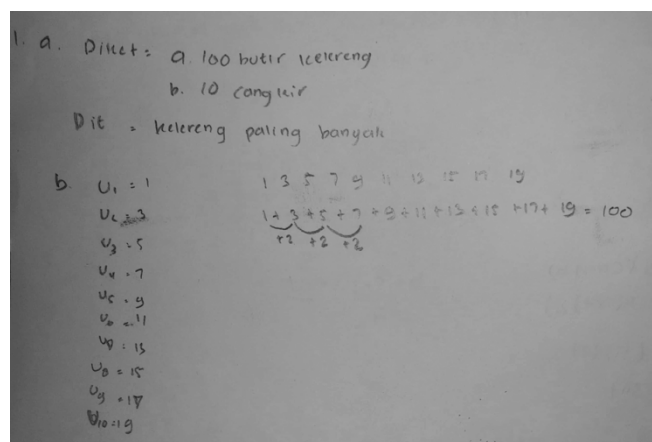 1. a. Diket = a. 100 butir kelereng
b. 10 cangkir
Dit = kelereng paling banyak
b. U1 = 1
U2 = 3
U3 = 5
U4 = 7
U5 = 9
U6 = 11
U7 = 13
U8 = 15
U9 = 17
U10 = 19
1 3 5 7 9 11 13 15 17 19
1 + 3 + 5 + 7 + 9 + 11 + 13 + 15 + 17 + 19 = 100
+2 +2 +2